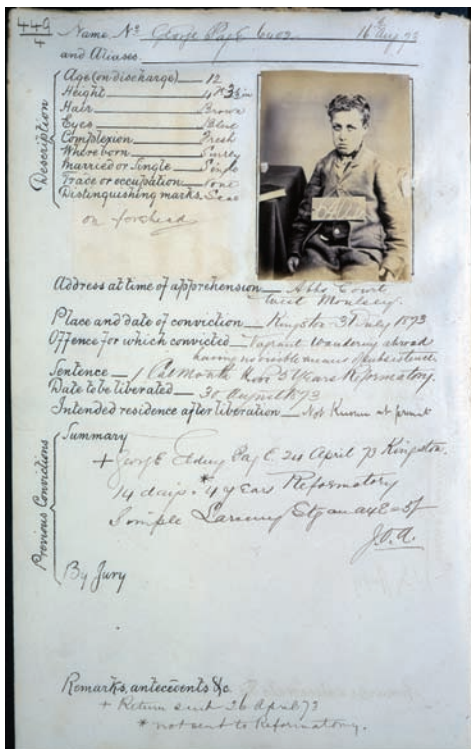 449
4
Name No George Page 6402 16 Aug 73
and Aliases
Description
Age (on discharge) 12
Height 4 ft 3½ in
Hair Brown
Eyes Blue
Complexion Fresh
Where born Surrey
Married or Single Single
Trade or occupation None
Distinguishing marks Scar
on forehead
6402
Address at time of apprehension Court
East Moulsey.
Place and date of conviction Kingston 31 July 1873
Offence for which convicted Vagrant Wandering abroad
having no visible means of subsistence
Sentence 1 Cal Month 5 Years Reformatory.
Date to be liberated 30 August 73
Intended residence after liberation Not Known at present
Previous Convictions
Summary
+ George Page 24 April 73 Kingston.
14 days & * 4 years Reformatory
Simple Larceny
By Jury
Remarks, antecedents &c.
+ Return such 26 April 73
* not sent to Reformatory.